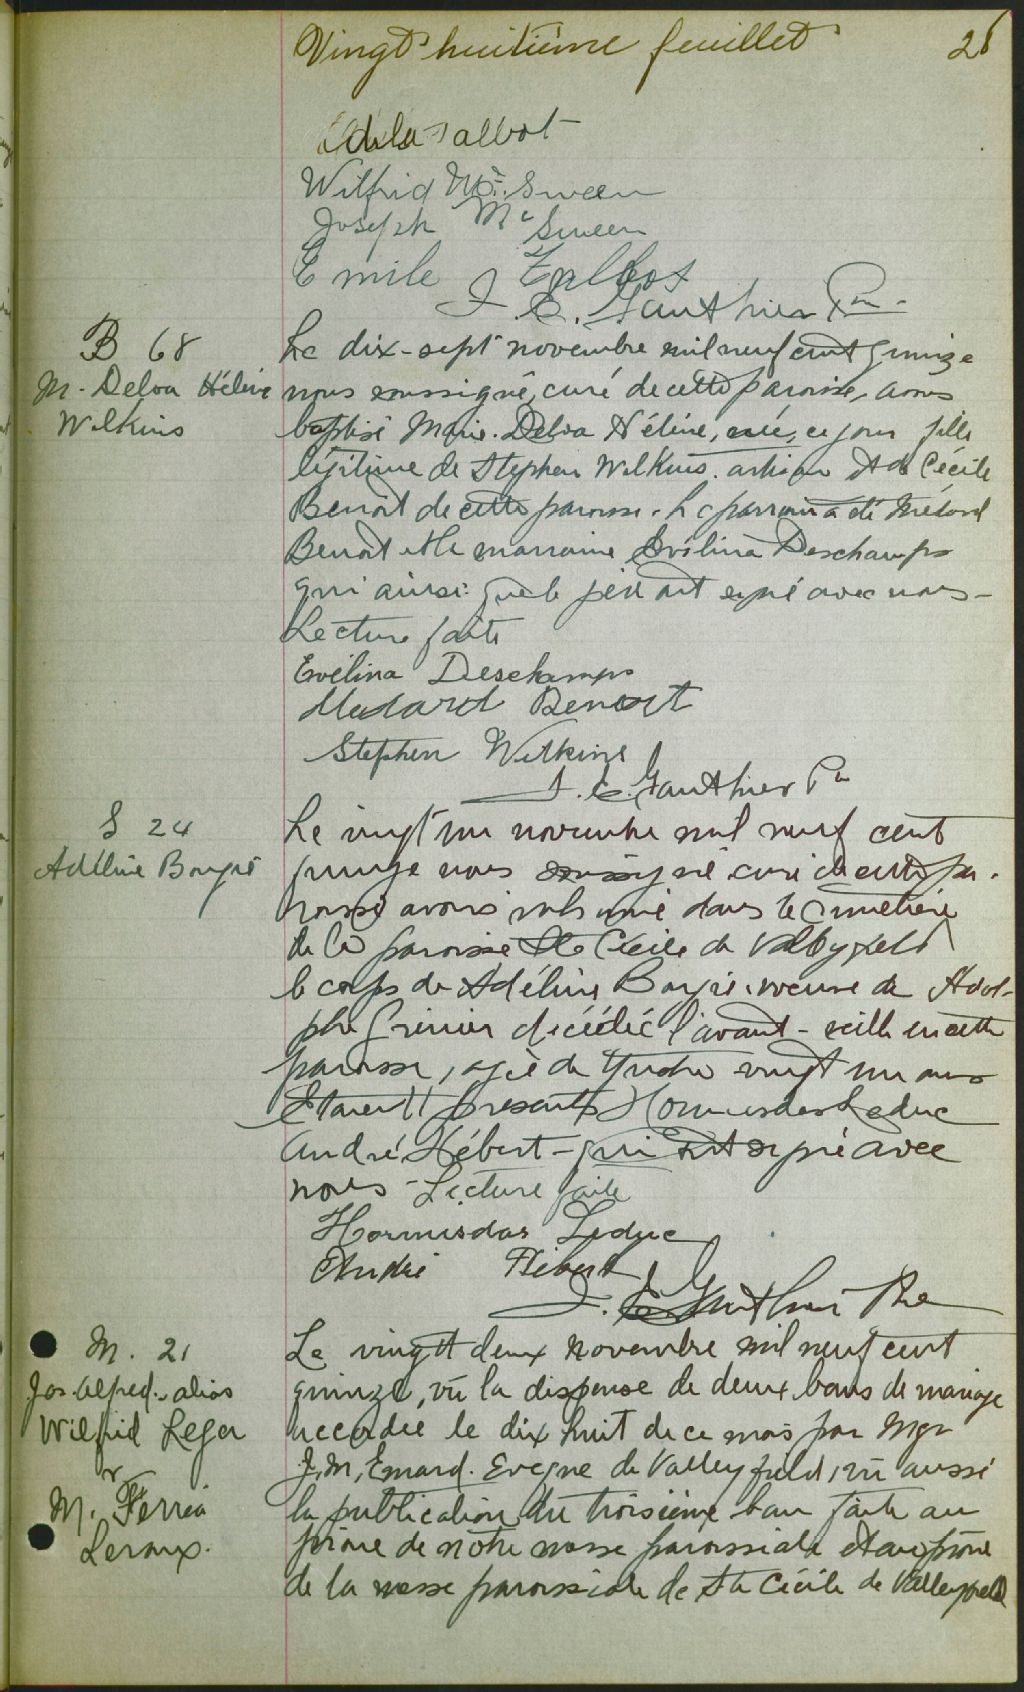 Vingt huitième feuillet 28
Adela Talbot
Wilfrid Mc Sween
Joseph Mc Sween
Emile Talbot
J. E. Gauthier Ptre
B 68
M. Delva Hélène
Wilkins
Le dix-sept novembre mil neuf cent quinze
nous soussigné, curé de cette paroisse, avons
baptisé Marie. Delva Hélène, née, ce jour fille
légitime de Stephen Wilkins. artisan et de Cécile
Benoit de cette paroisse. Le parrain a été Médard
Benoit et la marraine Evélina Deschamps
qui ainsi que le père ont signé avec nous-
Lecture faite
Evélina Deschamps
Medard Benoit
Stephen Wilkins
J. E. Gauthier Ptre
S 24
Adéline Bougié
Le vingt un novembre mil neuf cent
quinze nous soussigné curé de cette pa-
roisse avons inhumé dans le cimetière
de la paroisse Ste Cécile de Valleyfield
le corps de Adéline Bougié. veuve de Adol-
phe Grenier décédée l'avant-veille en cette
paroisse, agée de quatre vingt un ans
Etaient présents Hormisdas Leduc
André Hébert - qui ont signé avec
nous - Lecture faite
Hormisdas Leduc
André Hébert
J. E. Gauthier Ptre
M. 21
Jos. Alfred. alias
Wilfrid Leger
&
M. Ferréa
Leroux.
Le vingt deux novembre mil neuf cent
quinze, vu la dispense de deux bans de mariage
accordée le dix huit de ce mois par Mgr
J. M. Emard. Evêque de Valleyfield, vu aussi
la publication du troisième ban faite au
prône de notre messe paroissiale et au prône
de la messe paroissiale de Ste Cécile de Valleyfield